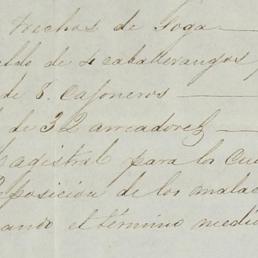 trechos de Soga
eldo de 4 caballerangos
de 8. Cajoneros
de 32 arreadores
Magistral para la Cu
posicion de los malac
ando el término medi